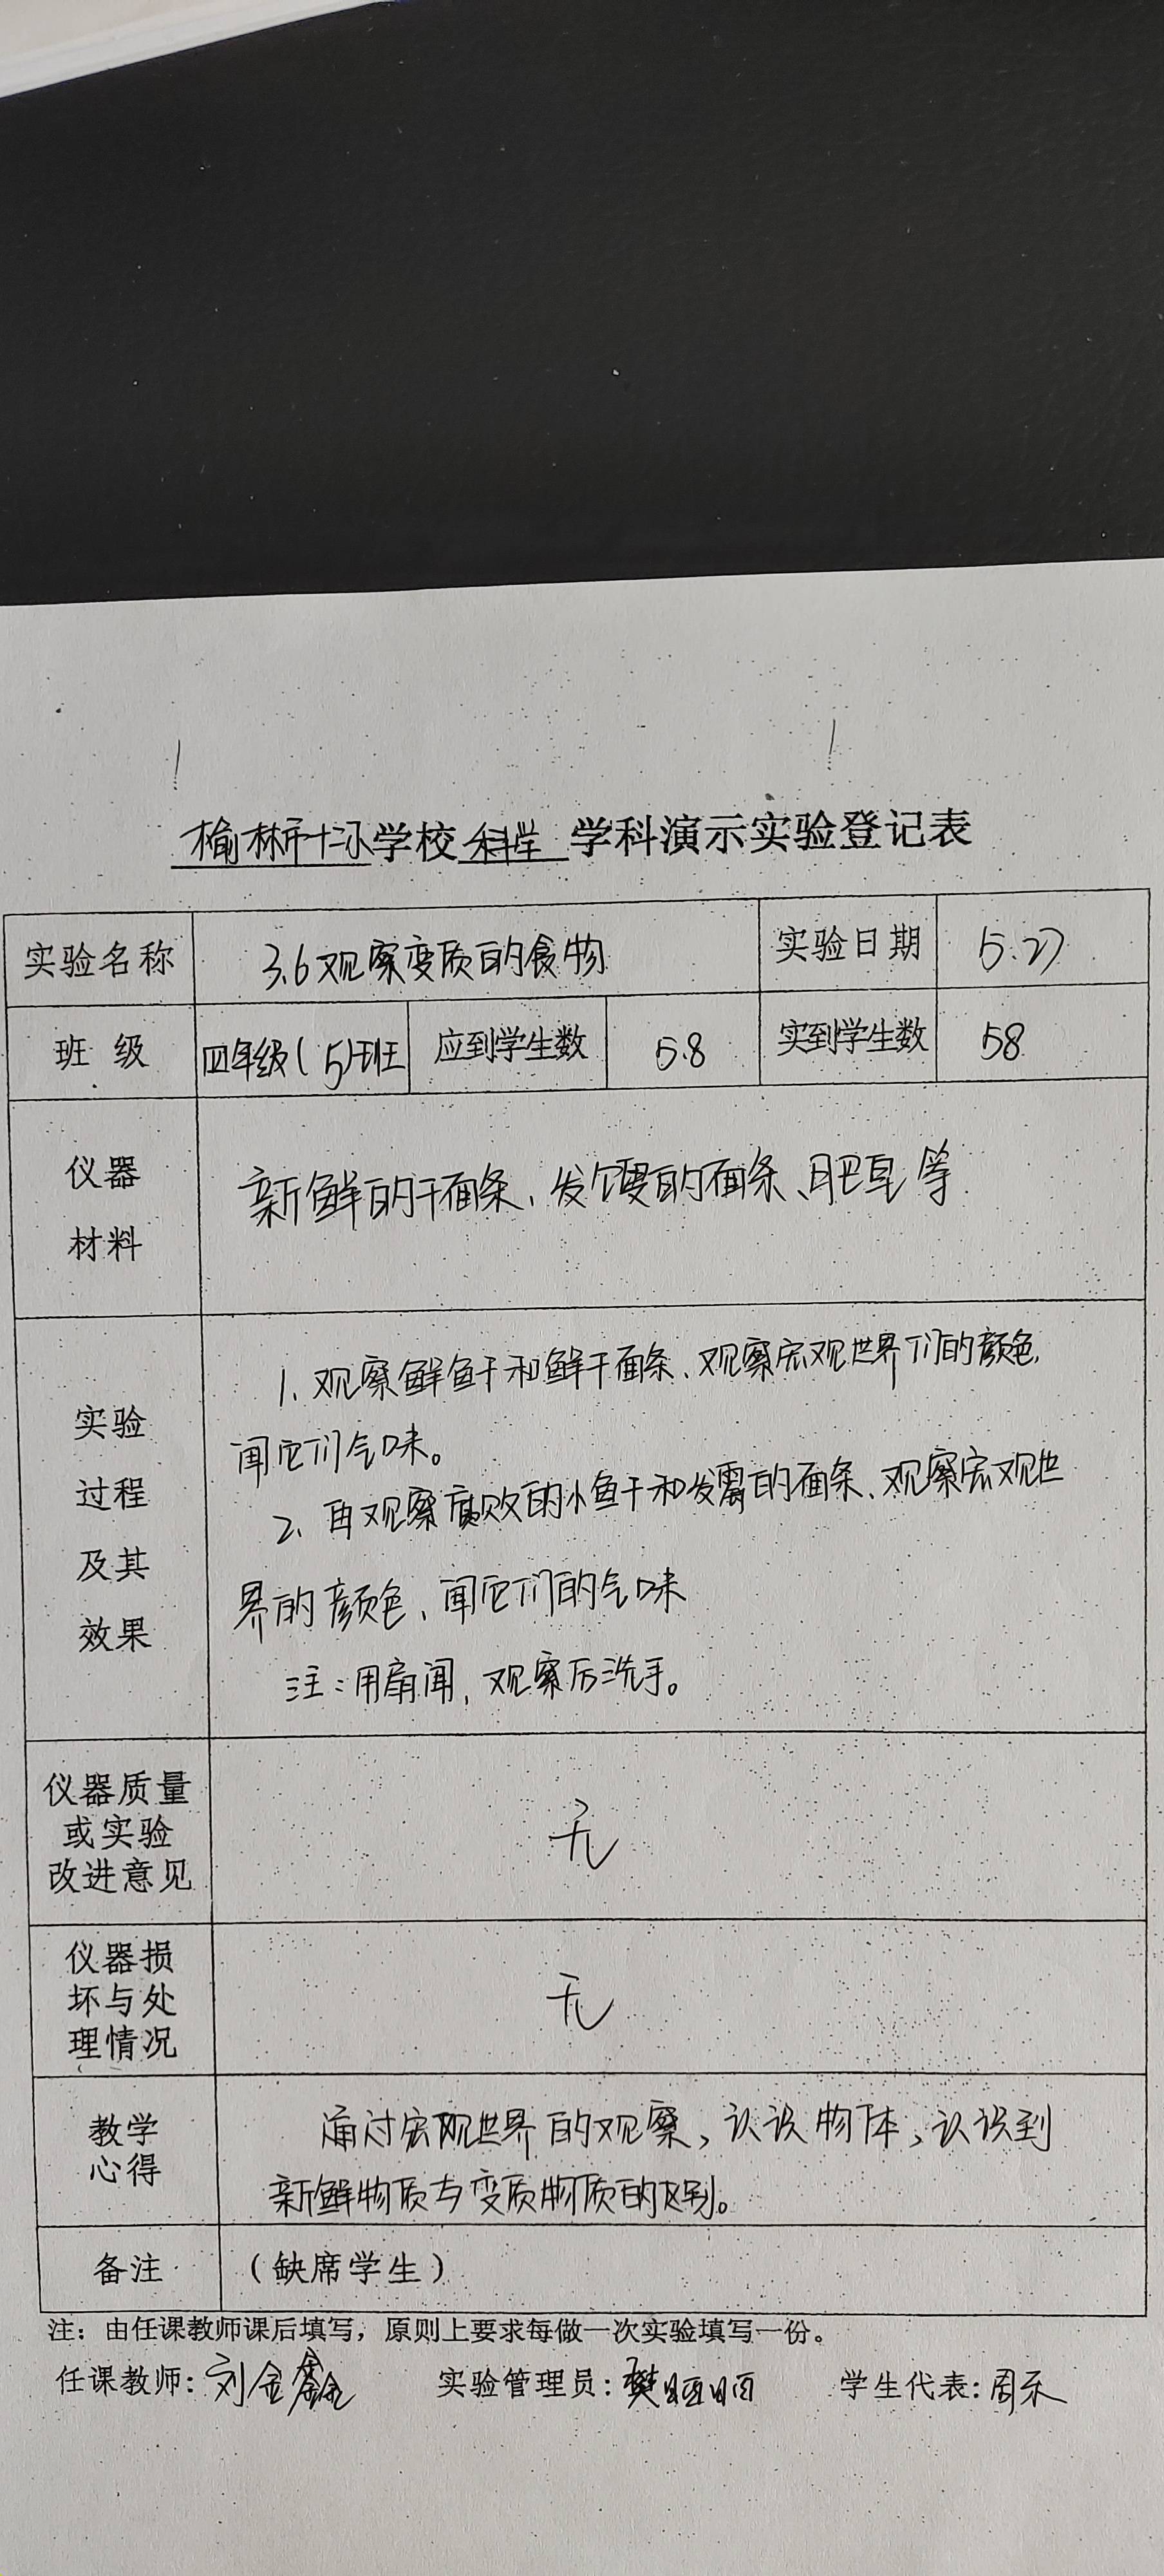 榆林市十二小学校 科学 学科演示实验登记表
实验名称 3.6观察变质的食物 实验日期 5.27
班 级 四年级(5)班 应到学生数 58 实到学生数 58
仪器
材料
新鲜的干面条、发馊的面条、肥皂等
实验
过程
及其
效果
1、观察鲜鱼干和鲜干面条、观察宏观世界们的颜色,
闻它们气味。
2、再观察腐败的小鱼干和发霉的面条、观察宏观世
界的颜色、闻它们的气味
注:用扇闻,观察后洗手。
仪器质量
或实验
改进意见
无
仪器损
坏与处
理情况
无
教学
心得
通过宏观世界的观察,认识物体,认识到
新鲜物质与变质物质的区别。
备注 (缺席学生)
注:由任课教师课后填写,原则上要求每做一次实验填写一份。
任课教师:刘金鑫 实验管理员:樊 学生代表:周禾